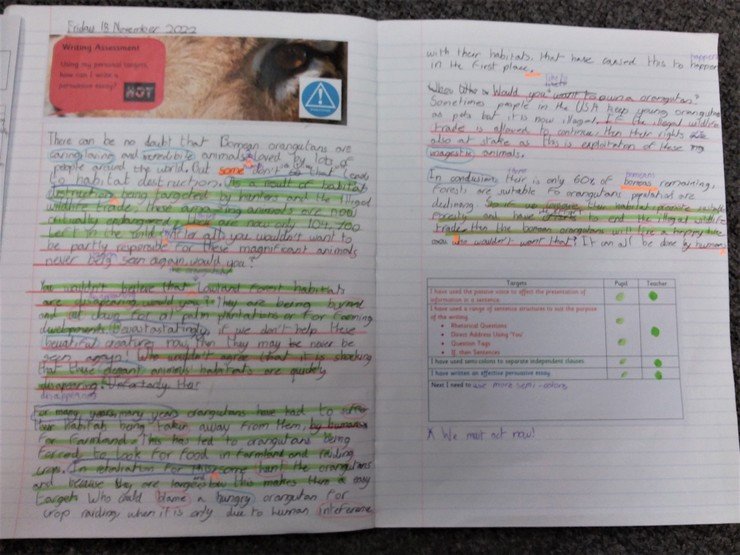 Friday 18 November 2022
Writing Assessment
Using my personal targets,
how can I write a
persuasive essay?
HOT
There can be no doubt that Bornean orangutans are
caring, loving and incredible animals loved by lots of
people around the world. But some don't that leads
to habitat destruction. As a result of habitat
destruction being targeted by hunters and the illegal
wildlife trade, these amazing animals are now
critically endangered. There are now only 104,700
left in the world; after all, you wouldn't want to
be partly responsible for these magnificent animals
never being seen again, would you?
You wouldn't believe that Lowland forest habitats
are would you? They are being burned
and cut down for oil palm plantations or for farming
developments. if we don't help these
beautiful creatures now, then they may be never be
seen again! Who wouldn't agree that it is shocking
that these elegant animals habitats are quickly
disapearing.
disappearing
For many years, many years orangutans have had to suffer
their habitats being taken away from them, by humans
for farmland. This has led to orangutans being
forced to look for food in farmland and raiding
crops. In retaliation for this some hunt the orangutans
and because they are this makes them a easy
target. Who could blame a hungry orangutan for
crop raiding when it is only due to human interference
with their habitats, that have caused this to happen
in the first place.
Would you want to own a orangutan?
Sometimes people in the USA keep young orangutans
as pets but it is now illegal. If the illegal wildlife
trade is allowed to continue, then their rights are
also at stake as this is exploitation of these
animals.
In conclusion, their is only 60% of borneos remaining,
forests are suitable for orangutans population are
declining. So if we improve their habitat, provide
and have to end the illegal wildlife
trade then the bornean orangutans will live a happy life
now who wouldn't want that? It can all be done by humans.
Targets Pupil Teacher
I have used the passive voice to affect the presentation of
information in a sentence.
I have used a range of sentence structures to suit the purpose
of the writing.
• Rhetorical Questions
• Direct Address Using 'You'
• Question Tags
• If, then Sentences
I have used semi colons to separate independent clauses.
I have written an effective persuasive essay.
Next I need to use more semi-colons
* We must act now!